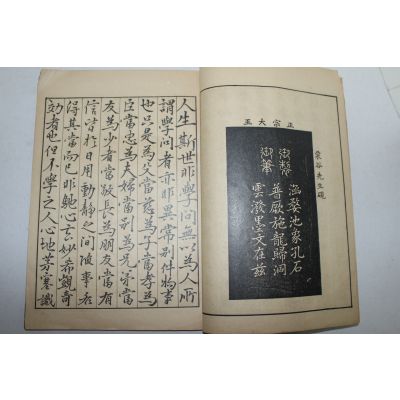 栗谷先生硯
正宗大王
涵婺池象孔石
普厥施龍歸洞
雲潑墨文在茲
御製
御筆
人生斯世非學問無以為人所
謂學問者亦非異常別件物事
也只是為父當慈為子當孝為
臣當忠為夫婦當別為兄弟當
友為少者當敬長為朋友當有
信皆於日用動靜之間隨事各
得其當而已非馳心玄妙希覬奇
効者也但不學之人心地茅塞識